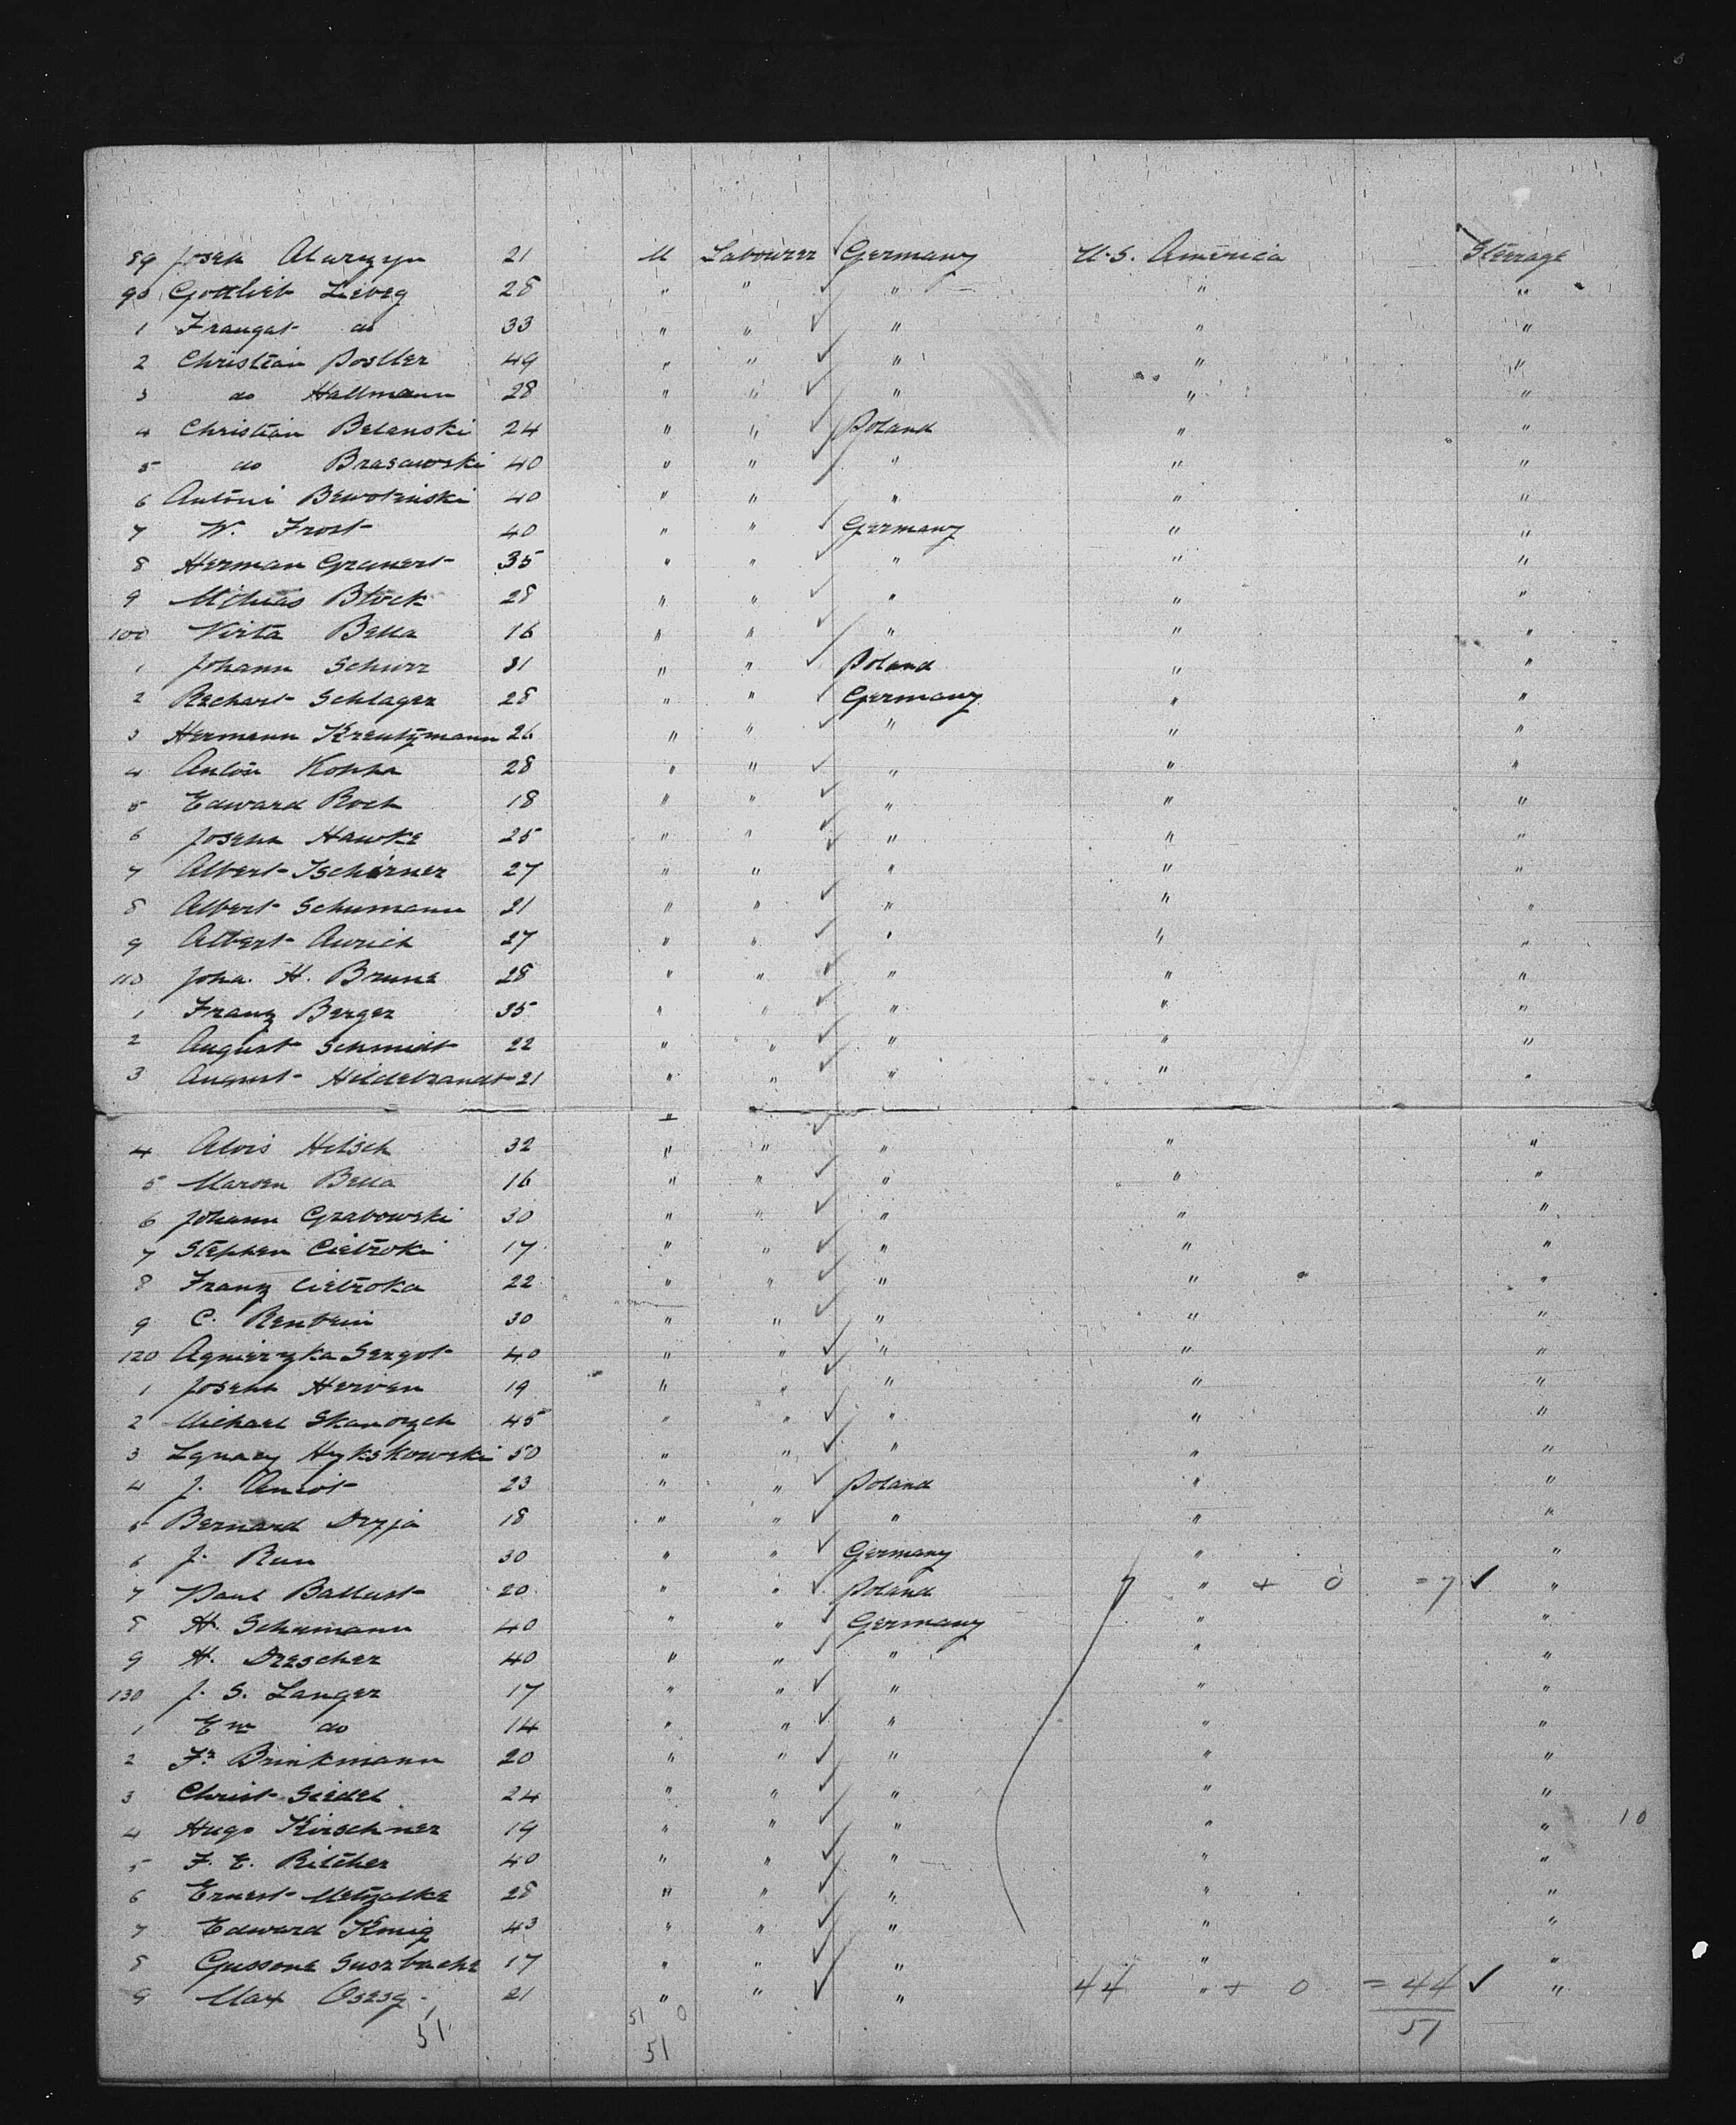 89 Josek 21 M Labourer Germany U.S. America Steerage
90 Gottlieb Liebeg 28 " " " " "
1 Traugat do 33 " " " " "
2 Christian Postler 49 " " " " "
3 do Hallmann 28 " " " " "
4 Christian Belanski 24 " " Poland " "
5 do Brasawski 40 " " " " "
6 Antoni 40 " " " " "
7 W. Frost 40 " " Germany " "
8 Herman Grunert 35 " " " " "
9 Block 28 " " " " "
100 Virta Bella 16 " " " " "
1 Johann Schurz 31 " " Poland " "
2 Rechart Schlager 28 " " Germany " "
3 Hermann Kreutzmann 26 " " " " "
4 Anton Koppa 28 " " " " "
5 Edward Roch 18 " " " " "
6 Joseph Hawke 25 " " " " "
7 Albert Tschirner 27 " " " " "
8 Albert Schumann 21 " " " " "
9 Albert Aurich 27 " " " " "
110 Joha. H. Brune 28 " " " " "
1 Franz Berger 35 " " " " "
2 August Schmidt 22 " " " " "
3 August Hildebrandt 21 " " " " "
4 Alois Hitsch 32 " " " " "
5 Bella 16 " " " " "
6 Johann Grabowski 30 " " " " "
7 Stephen Cietroki 17 " " " " "
8 Franz Cietroka 22 " " " " "
9 C. Rentein 30 " " " " "
120 Agnierzka Sergot 40 " " " " "
1 Joseph Herven 19 " " " " "
2 Michael 45 " " " " "
3 Ignacy Hykskowski 50 " " " " "
4 J. 23 " " Poland " "
5 Bernard Dryja 18 " " " " "
6 J. Run 30 " " Germany " "
7 Paul Ballust 20 " " Poland 7 " + 0 = 7 ✓ "
8 H. Schumann 40 " " Germany " "
9 H. Drescher 40 " " " " "
130 J. S. Langer 17 " " " " "
1 Ew do 14 " " " " "
2 Fr. Brinkmann 20 " " " " "
3 Christ Siedel 24 " " " " "
4 Hugo Kirschner 19 " " " " " 10
5 F. E. Ritcher 40 " " " " "
6 Ernest Metzalke 28 " " " " "
7 Edward König 43 " " " " "
8 17 " " " " "
9 Max 21 " " " 44 " + 0 = 44 ✓ "
51 51 0 51
51